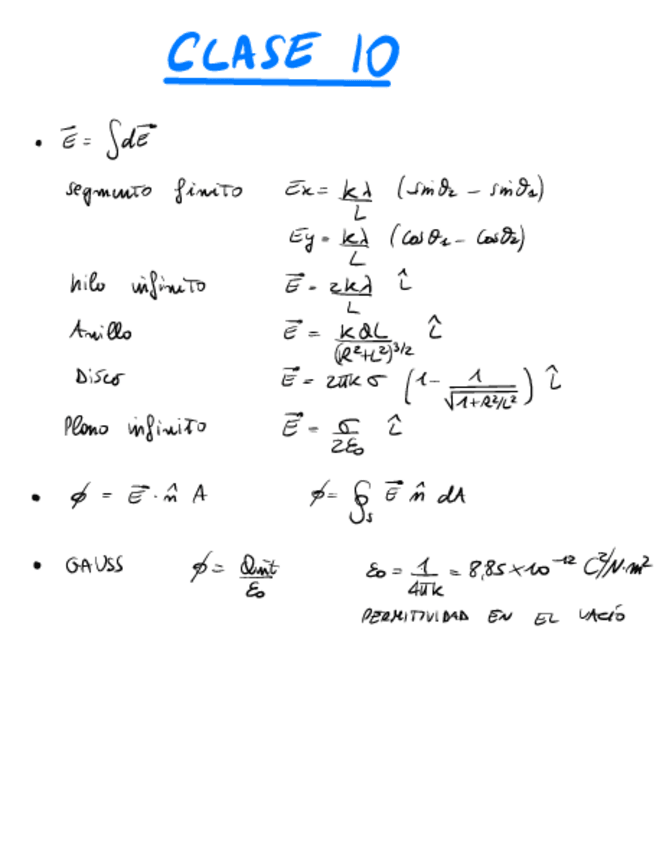 CLASE 10
• E⃗ = ∫dE⃗
segmento finito Ex = kλ/L (sinθ₂ - sinθ₁)
Ey = kλ/L (cosθ₁ - cosθ₂)
hilo infinito E⃗ = 2kλ/L L̂
Anillo E⃗ = kQL/(R²+L²)^3/2 L̂
Disco E⃗ = 2πkσ (1 - 1/√(1+R²/L²)) L̂
Plano infinito E⃗ = σ/2ε₀ L̂
• ϕ = E⃗ · n̂ A ϕ = ∮s E⃗ n̂ dA
• GAUSS ϕ = Qint/ε₀ ε₀ = 1/4πk = 8,85×10⁻¹² C²/N·m²
PERMITIVIDAD EN EL VACÍO